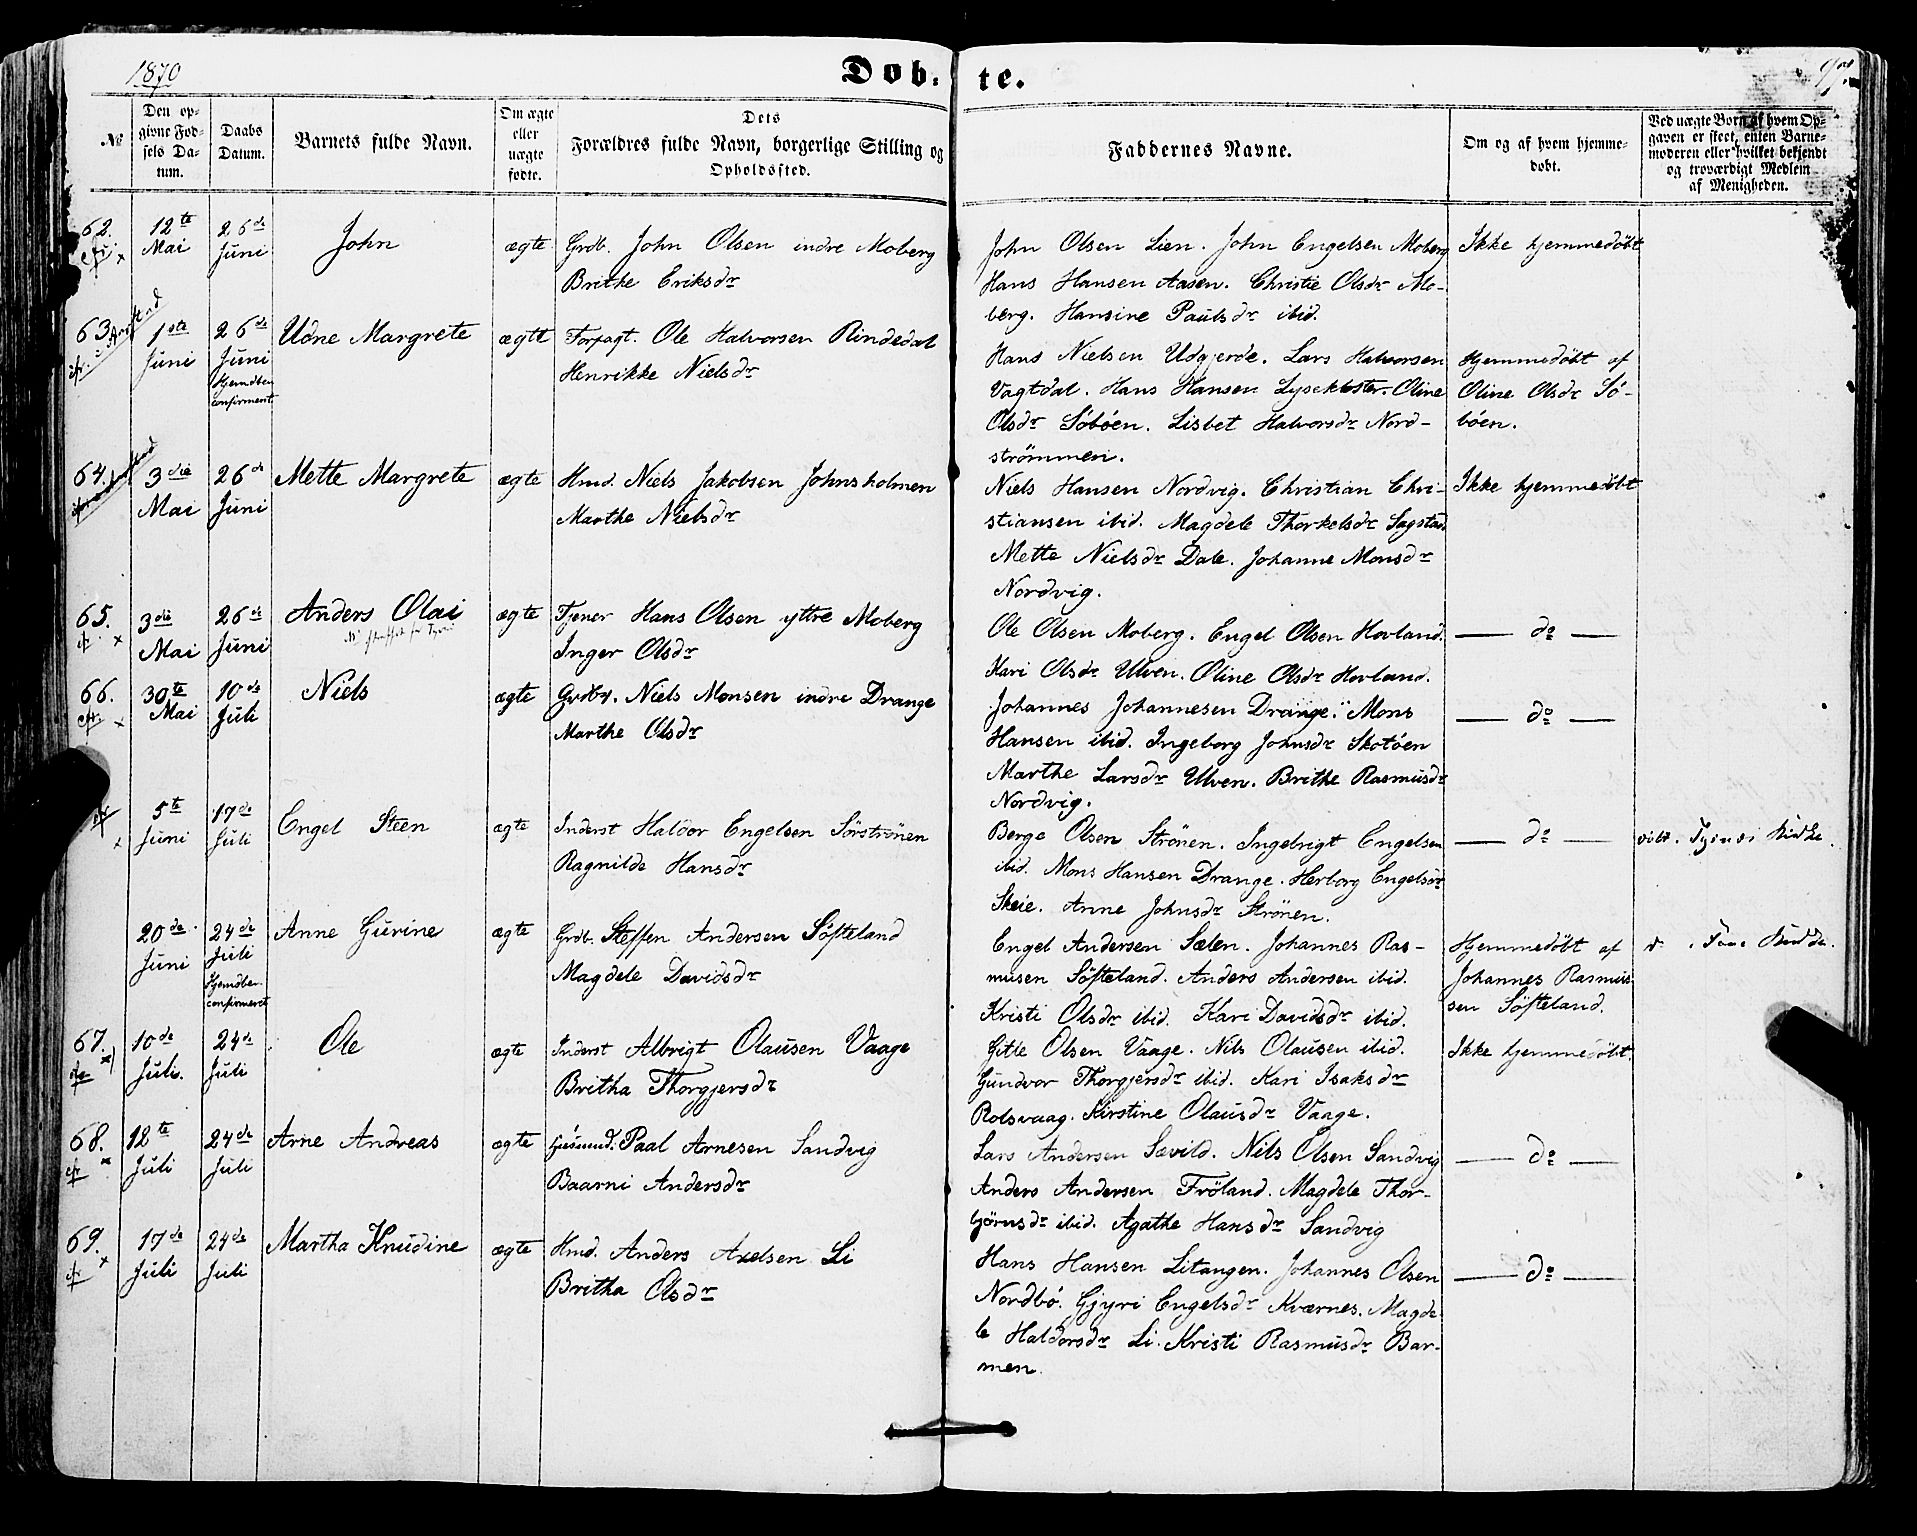 1870
Døb-te.
№
Den opgivne Fødsels Datum.
Daabs Datum.
Barnets fulde Navn.
Om ægte eller uægte fødte.
Dets Forældres fulde Navn, borgerlige Stilling og Opholdssted.
Faddernes Navne.
Om og af hvem hjemmedøbt.
Ved uægte Børn af hvem Opgaven er skeet, enten Barnemoderen eller hvilket bekjendt og troværdigt Medlem af Menigheden.
62.
12te Mai
26de Juni
John
ægte
Grdb. John Olsen indre Moberg
Brithe Eriksdr
John Olsen Lien. John Engelsen Moberg
Hans Hansen Aasen. Christie Olsdr Mo-
berg. Hansine Paulsdr ibid.
Ikke hjemmedøbt
63.
1ste Juni
26de Juni
Hjemdben confirmeret
Udne Margrete
ægte
Forpagt. Ole Halvorsen Rindedal
Henrikke Nielsdr
Hans Nielsen Udgjerde. Lars Halvorsen
Vagtdal. Hans Hansen Lysekloster. Oline
Olsdr Søbøen. Lisbet Halvorsdr Nord-
strømmen.
Hjemmedøbt af
Oline Olsdr Sø-
bøen.
64.
3die Mai
26de Juni
Mette Margrete
ægte
Hmd. Niels Jakobsen Johnsholmen
Marthe Nielsdr
Niels Hansen Nordvig. Christian Chri-
stiansen ibid. Magdele Thorkelsdr Sagstad
Mette Nielsdr Dale. Johanne Monsdr
Nordvig.
Ikke hjemmedøbt
65.
3die Mai
26de Juni
Anders Olai
ægte
Tjener Hans Olsen yttre Moberg
Inger Olsdr
Ole Olsen Moberg. Engel Olsen Hovland.
Kari Olsdr Ulven. Oline Olsdr Hovland.
— do —
66.
30te Mai
10de Juli
Niels
ægte
Grdbr. Niels Monsen indre Drange
Marthe Olsdr
Johannes Johannesen Drange. Mons
Hansen ibid. Ingeborg Johnsdr Skotøen
Marthe Larsdr Ulven. Brithe Rasmusdr
Nordvig.
— do —
5te Juni
17de Juli
Engel Steen
ægte
Inderst Haldor Engelsen Sørstrønen
Ragnilde Hansdr
Berge Olsen Strønen. Ingebrigt Engelsen
ibid. Mons Hansen Drange. Herborg Engelsdr
Skeie. Anne Johnsdr Strønen.
— do —
20de Juni
24de Juli
Hjemdben confirmeret
Anne Gurine
ægte
Grdb. Steffen Andersen Søfteland
Magdele Davidsdr
Engel Andersen Sælen. Johannes Ras-
musen Søfteland. Anders Andersen ibid.
Kristi Olsdr ibid. Kari Davidsdr ibid.
Hjemmedøbt af
Johannes Rasmus-
sen Søfteland.
67.
10de Juli.
24de Juli
Ole
ægte
Inderst Albrigt Olausen Vaage
Britha Thorgjersdr
Gitle Olsen Vaage. Nils Olausen ibid.
Gundvor Thorgjersdr ibid. Kari Isaksdr
Rolsvaag. Kirstine Olausdr Vaage.
Ikke hjemmedøbt
68.
12te Juli
24de Juli
Arne Andreas
ægte
Husmd. Paal Arnesen Sandvig
Baarni Andersdr
Lars Andersen Sævild. Nils Olsen Sandvig
Anders Andersen Frøland. Magdele Thor-
bjørnsdr ibid. Agathe Hansdr Sandvig
— do —
69.
17de Juli
24de Juli
Martha Knudine
ægte
Hmd. Anders Axelsen Li
Britha Olsdr
Hans Hansen Litangen. Johannes Olsen
Nordbø. Gjyri Engelsdr Kværnes. Magde-
le Haldorsdr Li. Kristi Rasmusdr Bar-
men.
— do —